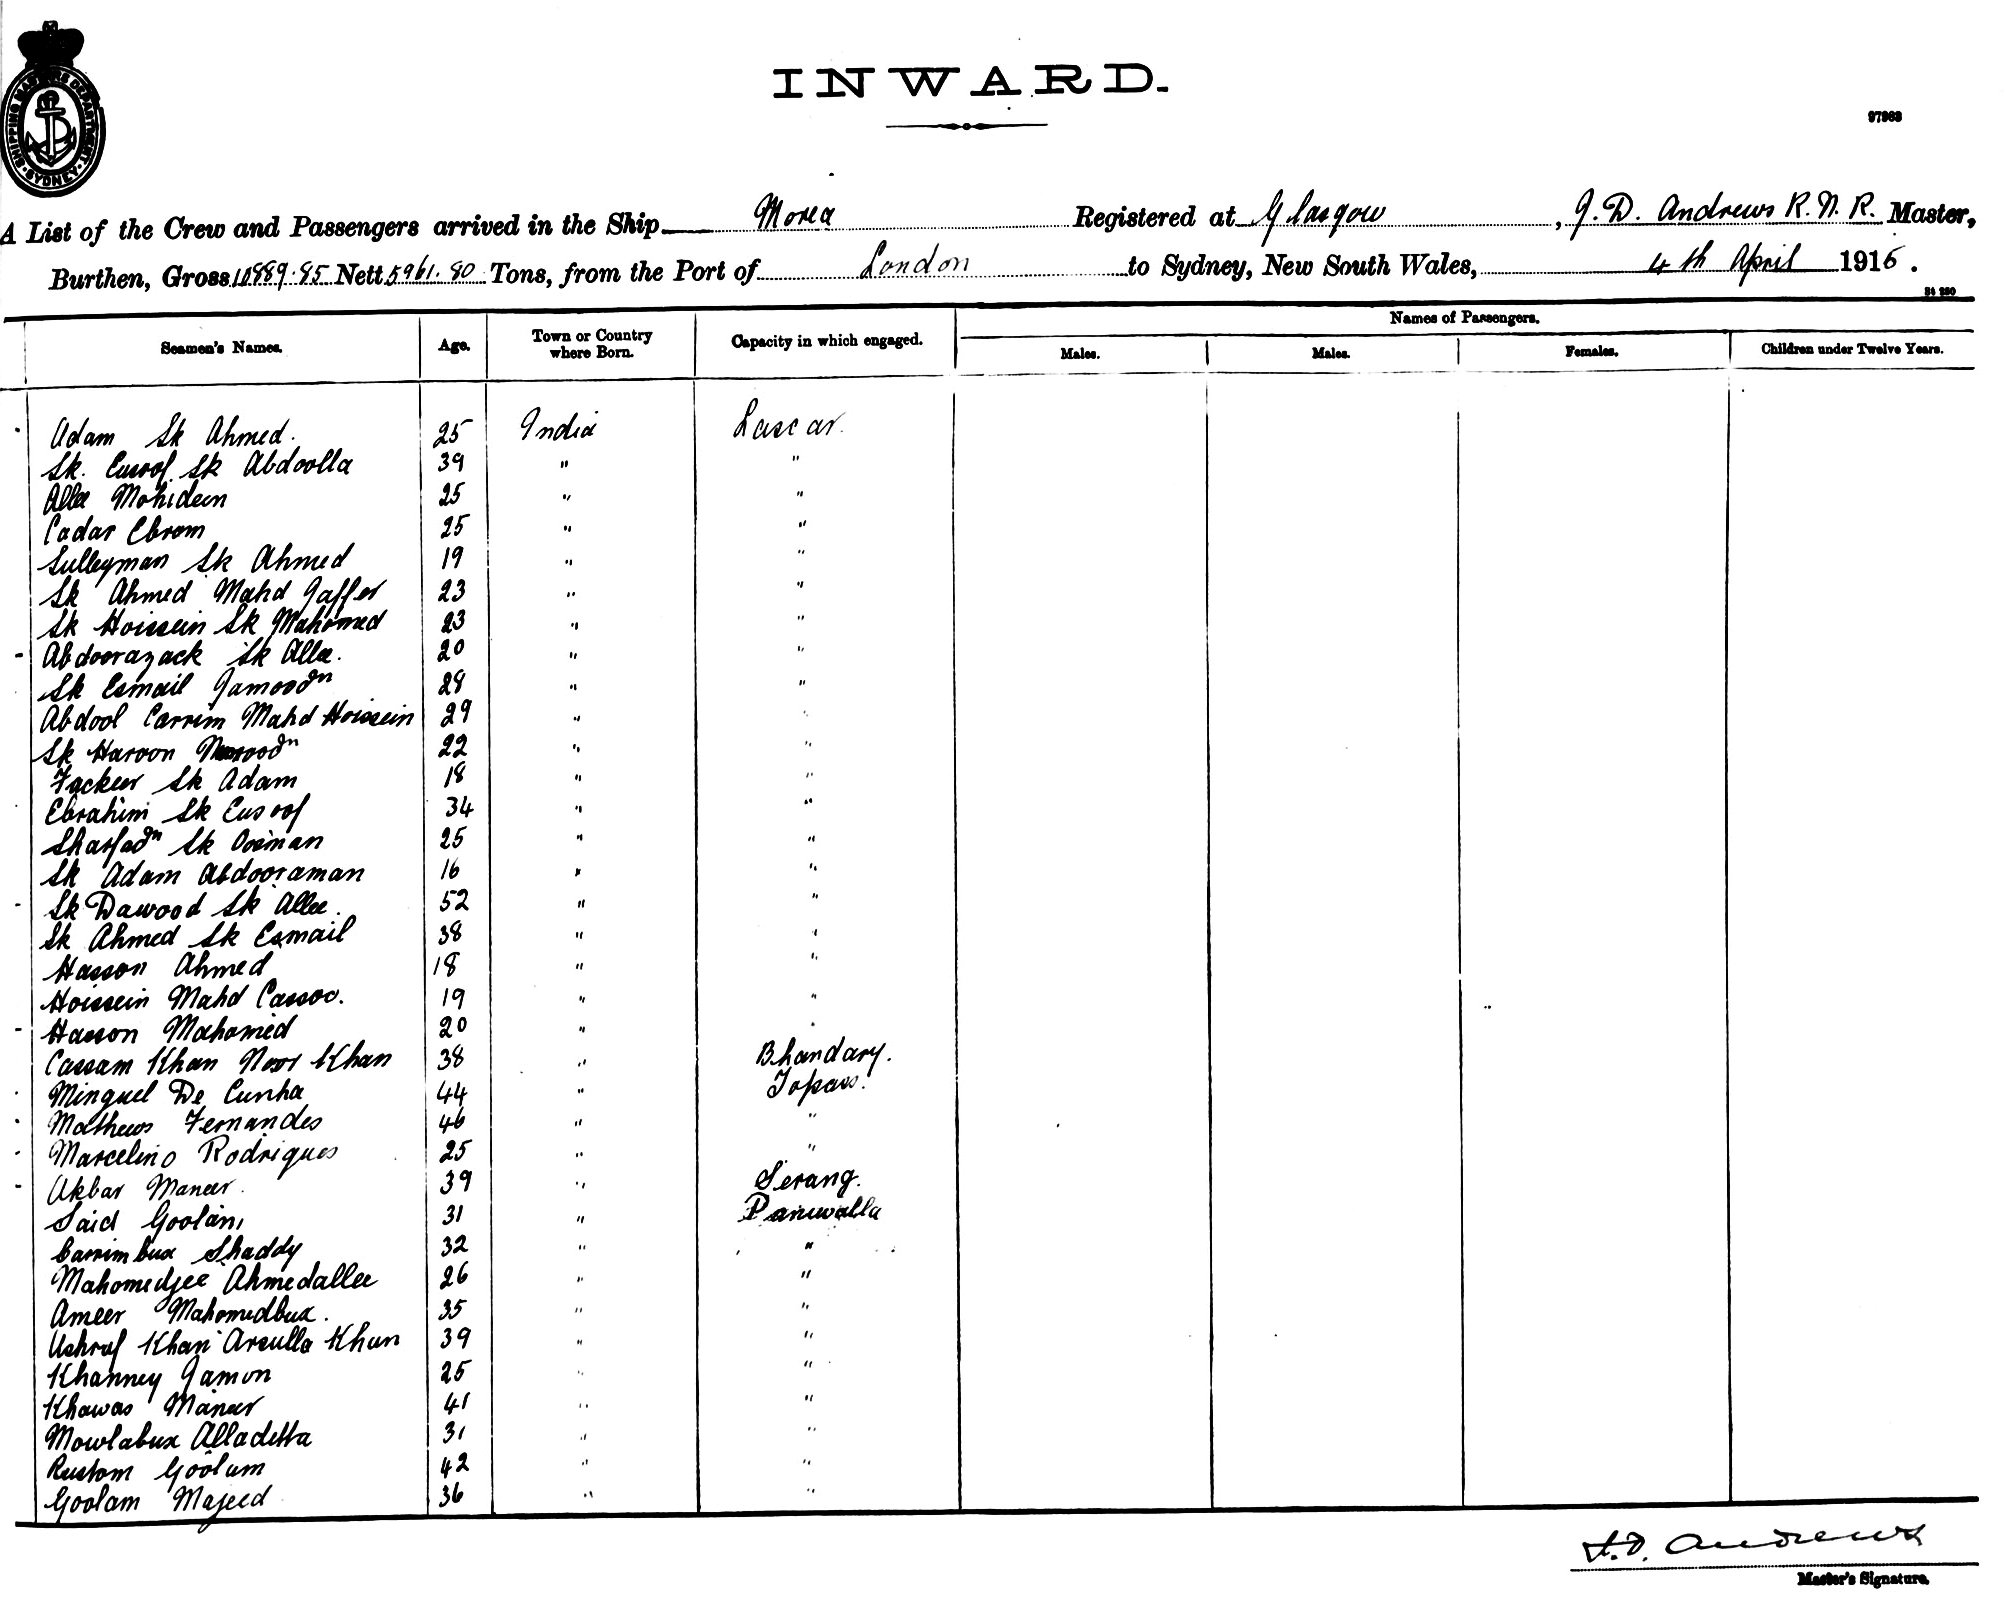 SHIPPING MASTERS DEPARTMENT. SYDNEY.
INWARD.
97963
A List of the Crew and Passengers arrived in the Ship Morea Registered at Glasgow, J. D. Andrews R. N. R. Master,
Burthen, Gross 10889.85 Nett 5961.80 Tons, from the Port of London to Sydney, New South Wales, 4th April 1916.
Seamen's Names. Age. Town or Country where Born. Capacity in which engaged. Names of Passengers.
Males. Males. Females. Children under Twelve Years.
Adam Sk Ahmed. 25 India Lascar.
Sk. Eusoof Sk Abdoolla 39 " "
Allee Mohideen 25 " "
Cadar Ebram 25 " "
Sulleyman Sk Ahmed 19 " "
Sk Ahmed Mahd Gaffer 23 " "
Sk Hoissein Sk Mahomed 23 " "
Abdoorazack Sk Allee. 20 " "
Sk Esmail Jamoodn 28 " "
Abdool Carrim Mahd Hoissein 29 " "
Sk Haroon 22 " "
Fackeer Sk Adam 18 " "
Ebrahim Sk Eusoof 34 " "
Sharfadn Sk Oosman 25 " "
Sk Adam Abdooraman 16 " "
Sk Dawood Sk Allee. 52 " "
Sk Ahmed Sk Esmail 38 " "
Hasson Ahmed 18 " "
Hoissein Mahd Cassoo. 19 " "
Hasson Mahomed 20 " "
Cassam Khan Noor Khan 38 " Bhandary.
Minguel De Cunha 44 " Topass.
Mathews Fernandes 46 " "
Marcelino Rodrigues 25 " "
Akbar Maneer. 39 " Serang.
Said Goolam 31 " Paniwalla
Carrimbux Shaddy 32 " "
Mahomedjee Ahmedallee 26 " "
Ameer Mahomedbux. 35 " "
Ushruf Khan Arsulla Khan 39 " "
Khanney Jamon 25 " "
Khawas Maneer 41 " "
Mowlabux Alladitta 31 " "
Rustom Goolum 42 " "
Goolam Majeed 36 " "
J. D. Andrews
Master's Signature.